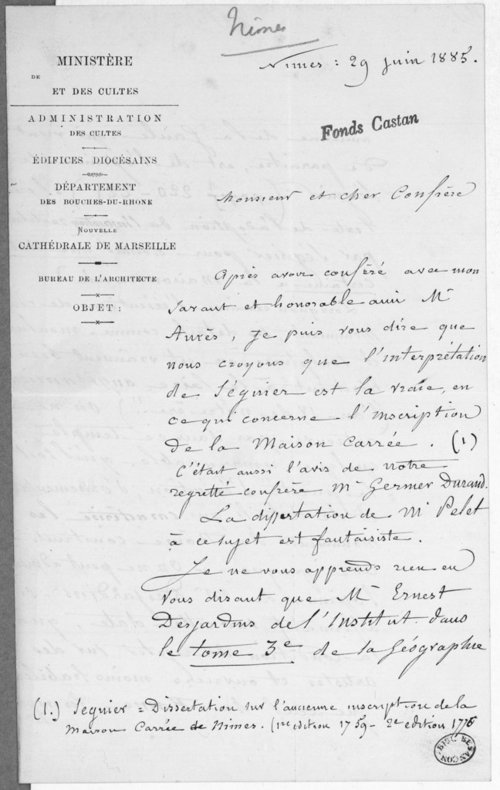 Nimes
MINISTÈRE
DE
ET DES CULTES
ADMINISTRATION
DES CULTES
ÉDIFICES DIOCÉSAINS
DÉPARTEMENT
DES BOUCHES-DU-RHONE
NOUVELLE
CATHÉDRALE DE MARSEILLE
BUREAU DE L'ARCHITECTE
OBJET :
Nimes : 29 juin 1885.
Fonds Castan
Monsieur et cher Confrère
Après avoir conféré avec mon
savant et honorable ami Mr
Aurès, je puis vous dire que
nous croyons que l'interprétation
de Séguier est la vraie, en
ce qui concerne l'inscription
de la Maison Carrée. (1)
C'était aussi l'avis de notre
regretté confrère Mr Germer Durand.
La dissertation de Mr Pelet
à ce sujet est fantaisiste.
Je ne vous apprends rien en
vous disant que Mr Ernest
Desjardins de l'Institut. dans
le tome 3e de la Géographie
(1.) Seguier = Dissertation sur l'ancienne inscription de la
Maison Carrée de Nimes. (1re edition 1759 - 2e edition 1776
BIBL. BESANÇON